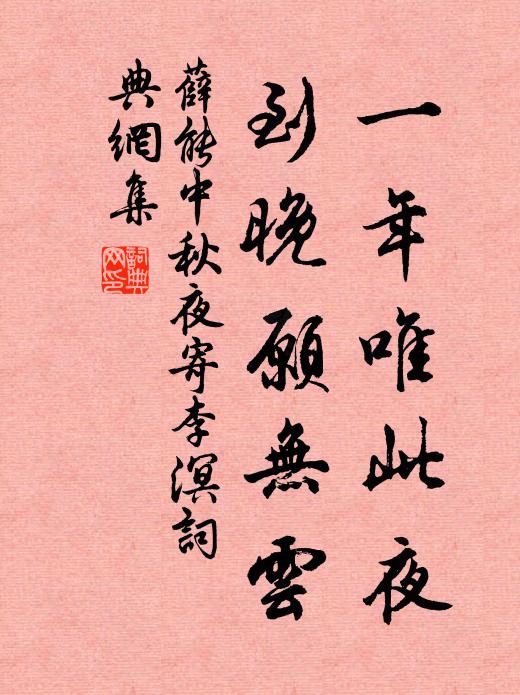 一年唯此夜
到晚願無雲
薛能中秋夜寄李溟詞
典網集
詞典
网印